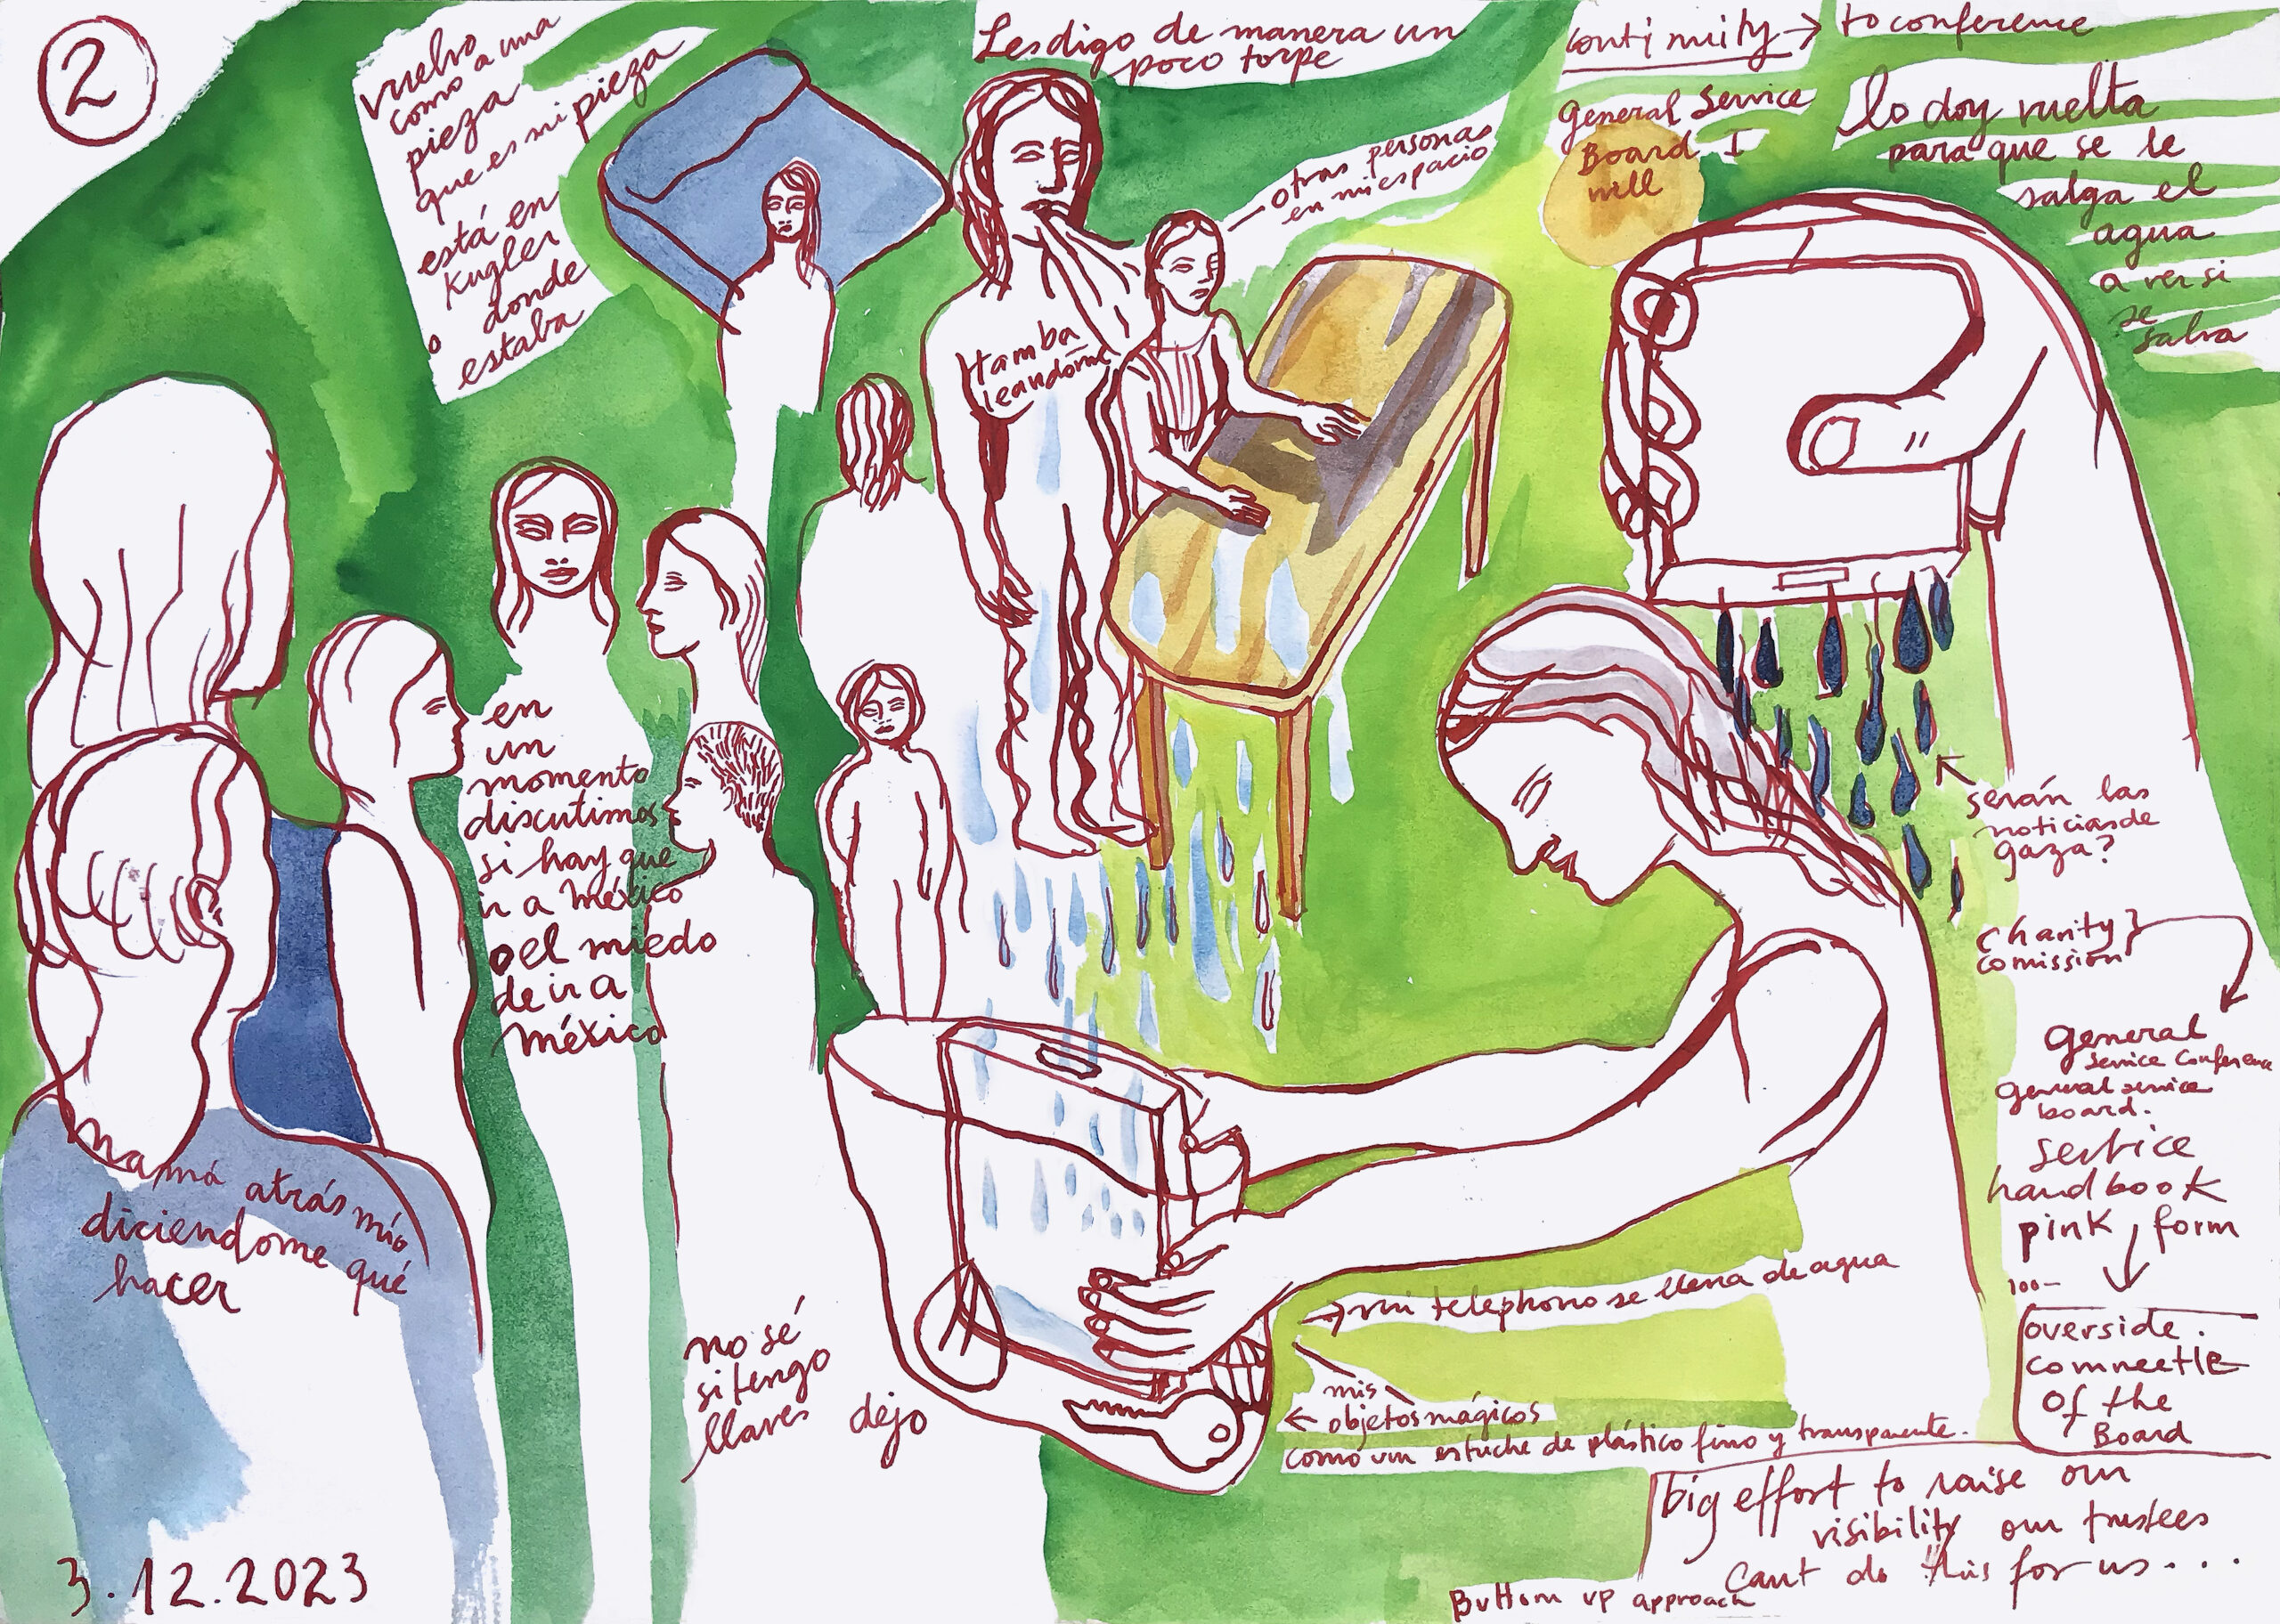 2
vuelvo
como a una
pieza
que es mi pieza
está en
Kugler
o donde
estaba
Les digo de manera un
poco torpe
otras personas
en mi espacio
continuity → to conference
General Service
Board I
will
lo doy vuelta
para que se le
salga el
agua
a ver si
se
salva
tamba
leandome
en
un
momento
discutimos
si hay que
ir a méxico
o el miedo
de ir a
méxico
serán las
noticias de
gaza?
charity
comissión
general
service conference
general service
board.
service
handbook
pink form
100-
overside.
of the
Board
mamá atrás mío
diciendome qué
hacer
no sé
si tengo
llaves dejo
→ mi telephono se llena de agua
mis
← objetos mágicos
como un estuche de plástico fino y transparente.
big effort to raise our
visibility our trustees
Cant do this for us...
Buttom up approach
3.12.2023